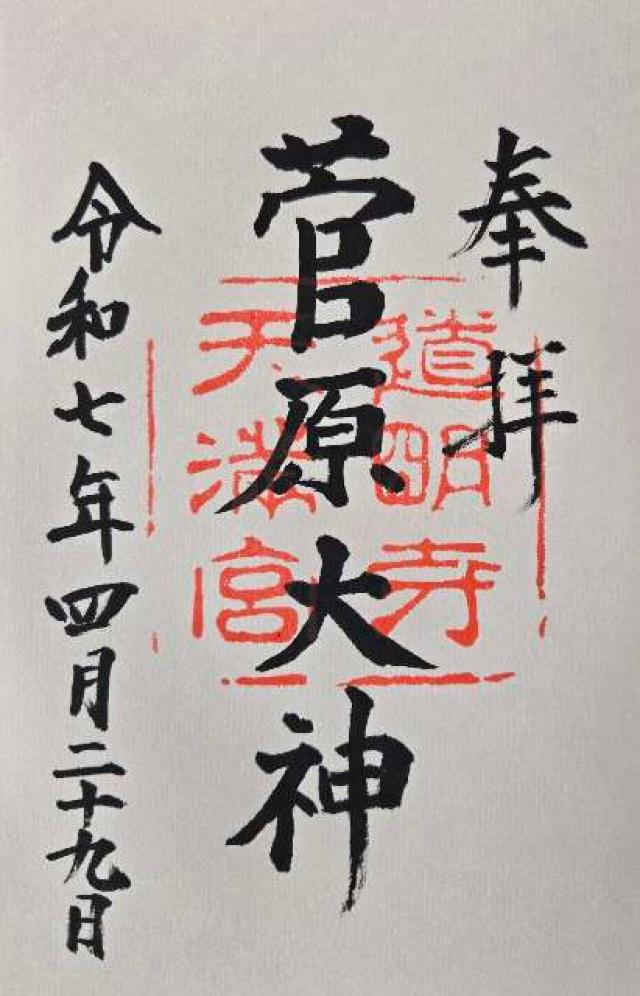 奉拝
菅原大神
道明寺
天満宮
令和七年四月二十九日